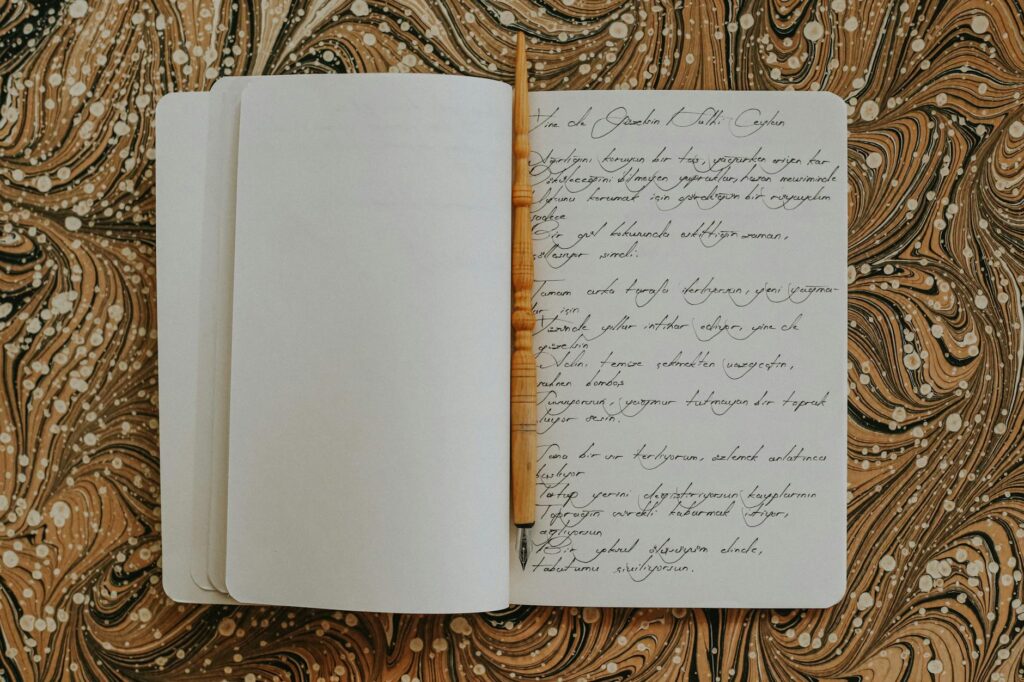 Yine de Güzelsin Nuthi Ceylan
Ağırlığını koruyan bir taş, yağarken eriyen kar
bilmeyen yapraklar, hazan mevsiminde
korumak için gördüğün bir rüyaydım
sadece
Bir gül kokusunda eskittiğin zaman,
şimdi.
Tamam arka tarafa ilerliyorsun, yeni yağma-
lar için
Yüzünde yıllar intihar ediyor, yine de
güzelsin
temize çekmekten vazgeçtin,
bomboş
Susuyorsun, yağmur tutmayan bir toprak
oluyor sesin.
Sana bir sır veriyorum, özlemek anlatınca
başlıyor
Tutup yerini değiştiriyorsun kayıplarının
Toprağın sürekli kabarmak istiyor,
ağlıyorsun
Bir yoksul ölüsüyüm elinde,
tabutumu çiviliyorsun.